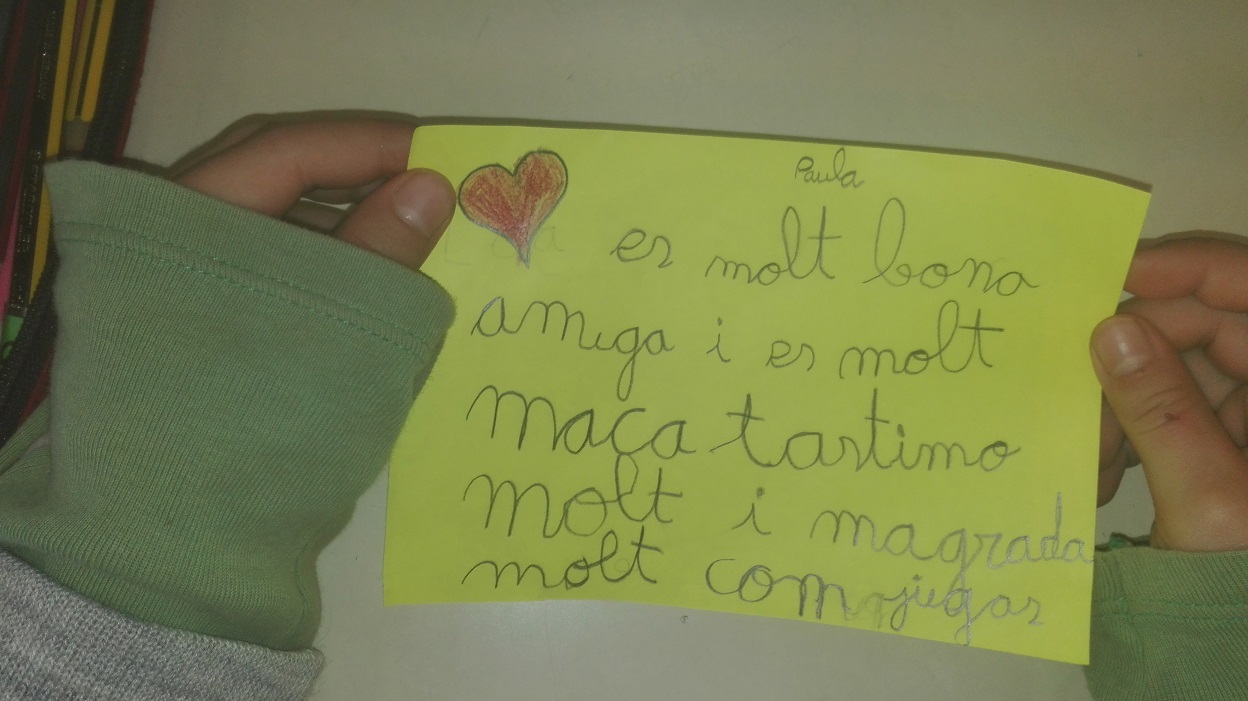 Paula
es molt bona
amiga i es molt
maca tastimo
molt i magrada
molt com jugas